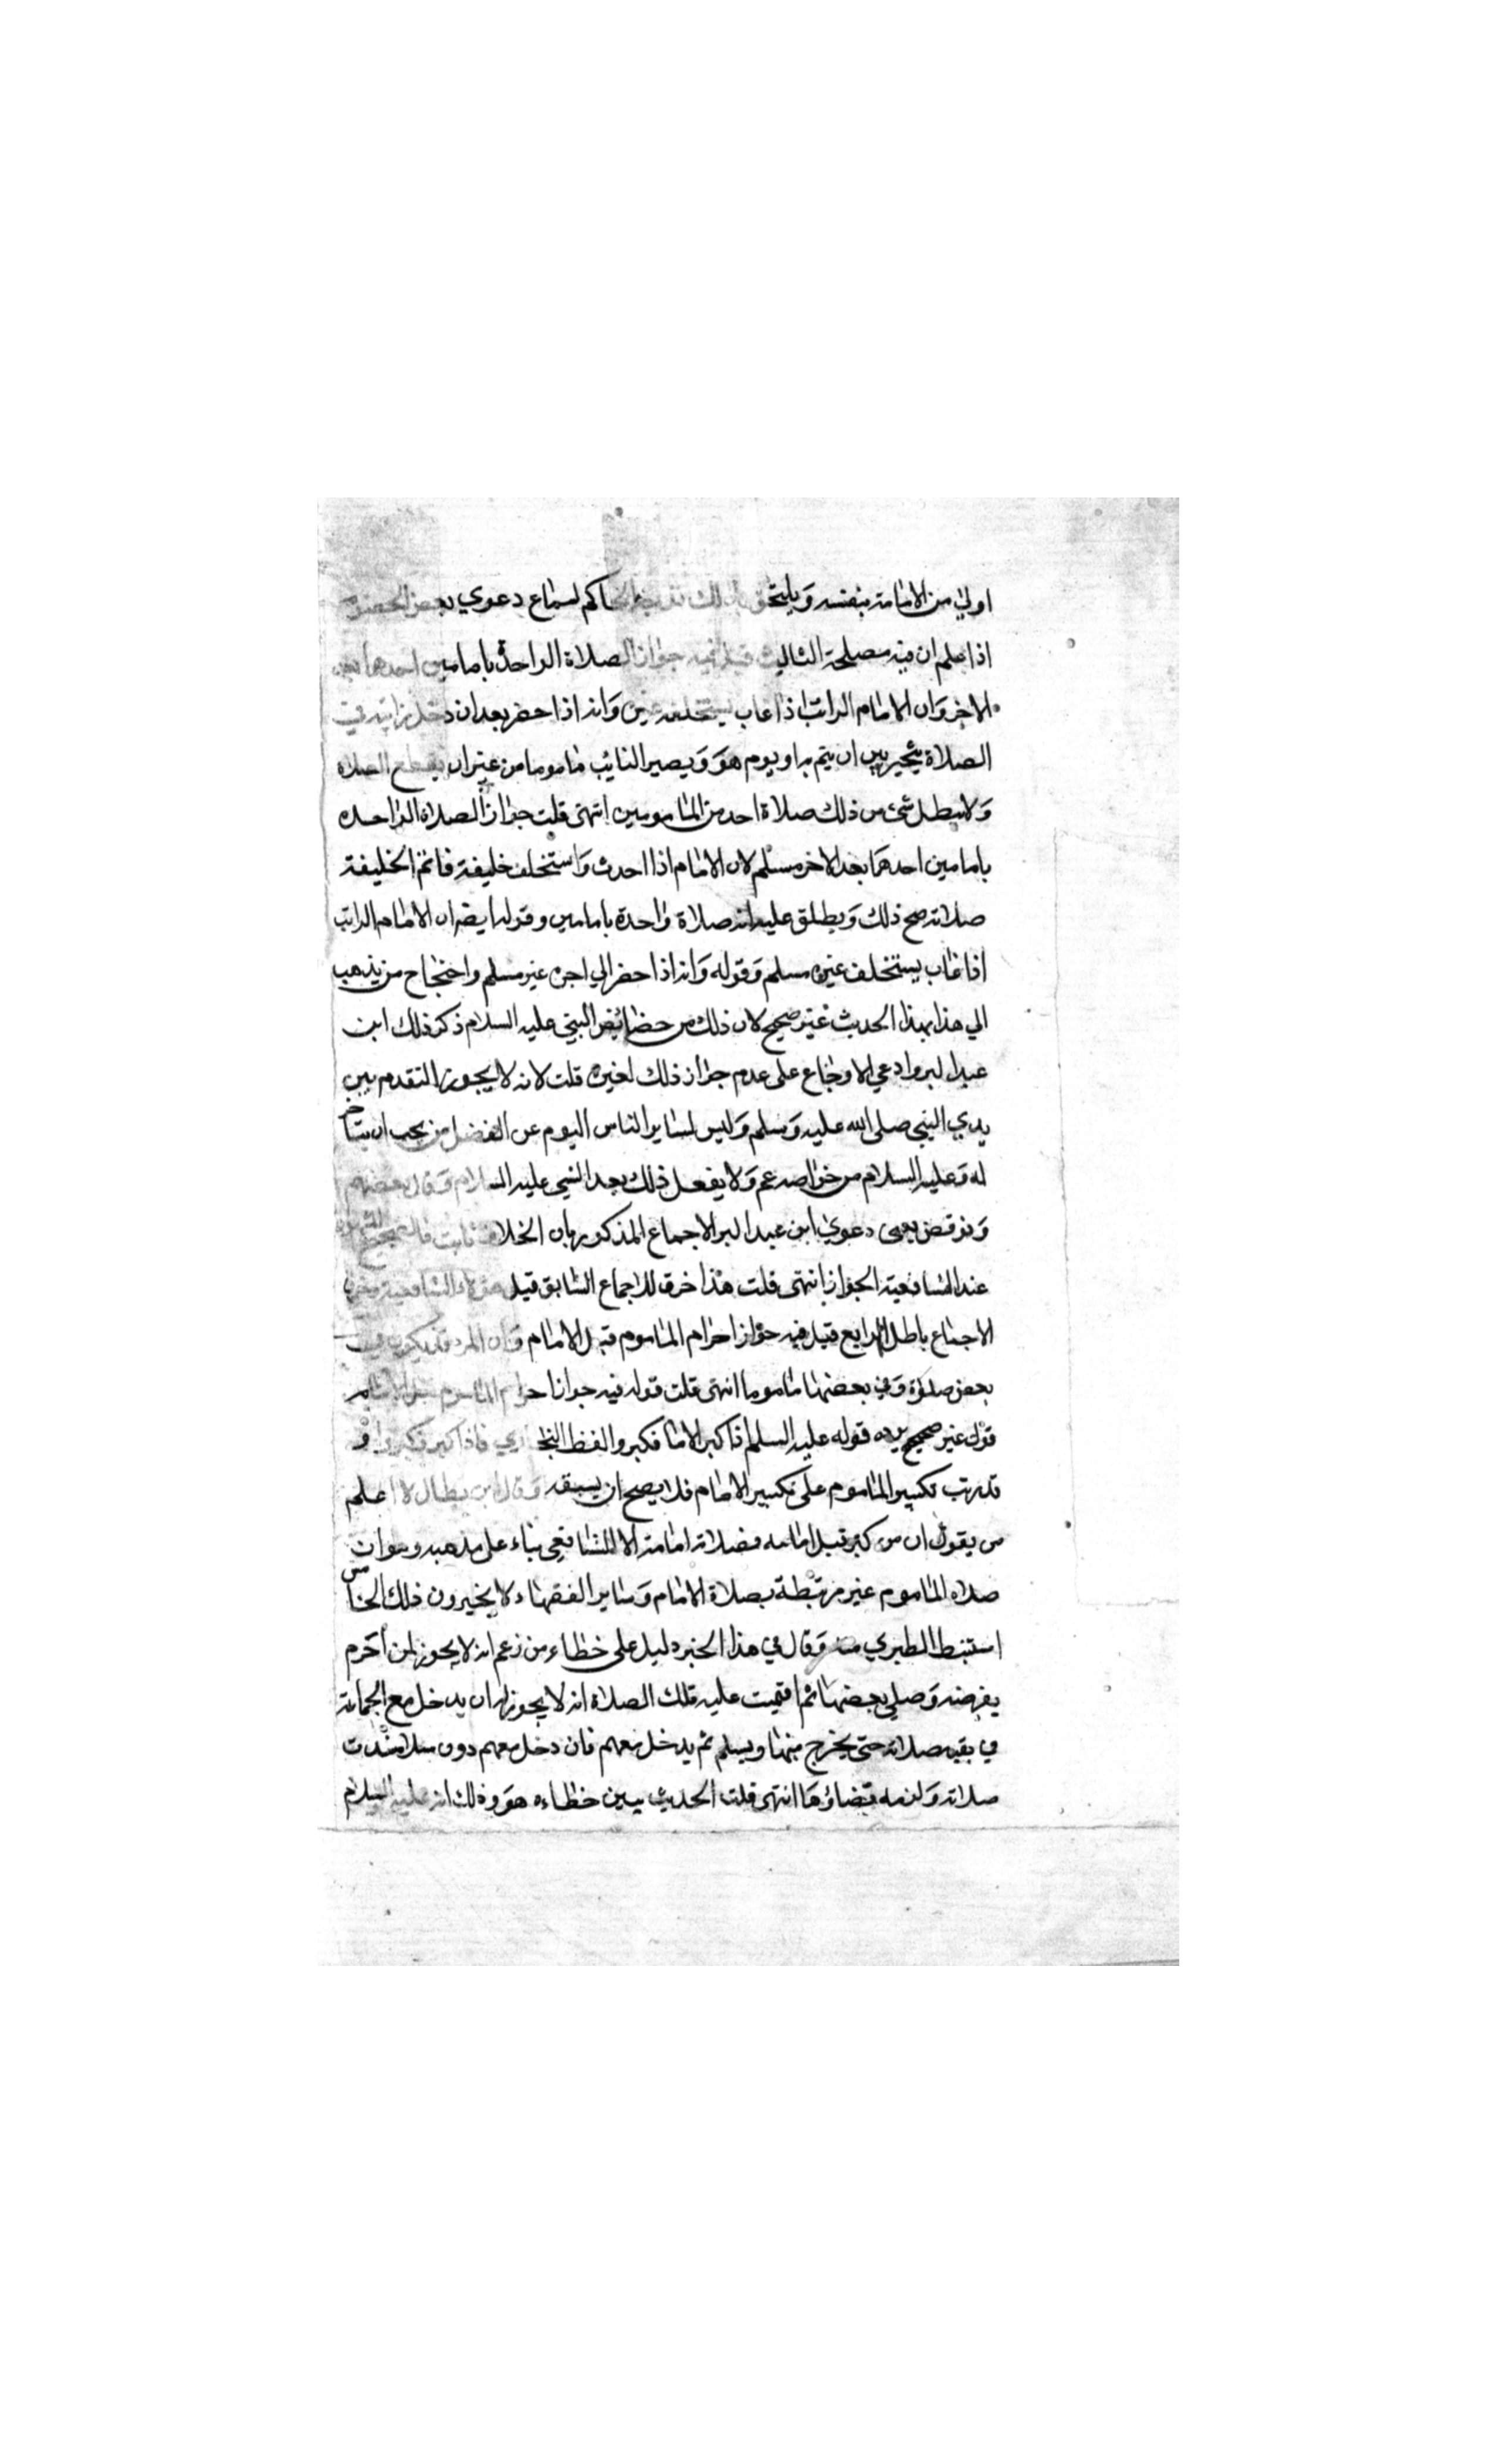 اولي من الامامة بنفسه ويلتحق بذلك توجه الحاكم لسماع دعوي بعض الخصوم
اذا علم ان فيه مصلحة الثالث قيل فيه جواز الصلاة الواحدة بامامين احدهما بعد
الاخر وان الامام الراتب اذا غاب يستخلف غيره وانه اذا حضر بعد ان دخل نائبه في
الصلاة يتخير بين ان يتم به او يوم هو ويصير النايب ماموما من غير ان يقطع الصلاة
ولا يبطل شي من ذلك صلاة احد من المامومين انتهي قلت جواز الصلاة الواحده
بامامين احدهما بعد الاخر مسلم لان الامام اذا احدث واستخلف خليفة فاتم الخليفة
صلاته صح ذلك ويطلق عليه انه صلاة واحدة بامامين وقوله ايضا ان الامام الراتب
اذا غاب يستخلف غيره مسلم وقوله وانه اذا حضر الي اخره غير مسلم واحتجاج من يذهب
الي هذا بهذا الحديث غير صحيح لان ذلك من خصايص النبي عليه السلام ذكر ذلك ابن
عبد البر وادعي الاجماع علي عدم جواز ذلك لغيره قلت لانه لا يجوز التقدم بين
يدي النبي صلى الله عليه وسلم وليس لساير الناس اليوم عن الفضل من يجب ان يتاخر
له وعليه السلام من خواصه عم ولا يفعل ذلك بعد النبي عليه السلام وقال بعضهم
ونوقض يعني دعوي ابن عبد البر الاجماع المذكور بان الخلاف ثابت فالصحيح المشهور
عند الشافعية الجواز انتهي قلت هذا خرق للاجماع السابق قبل هؤلاء الشافعية وخرق
الاجماع باطل الرابع قيل فيه جواز احرام الماموم قبل الامام وان المرء قد يكون في
بعض صلاته وفي بعضها ماموما انتهي قلت قوله فيه جواز احرام الماموم قبل الامام
قول غير صحيح يرده قوله عليه السلم اذا كبر الاما فكبرو الفظ البخاري فاذا كبر فكبروا و
قد رتب تكبير الماموم علي تكبير الامام فلا يصح ان يسبقه وقال ابن بطال لا اعلم
من يقول ان من كبر قبل امامه فصلاته امامة الا الشافعي بناء علي مذهبه وهو ان
صلاه الماموم غير مرتبطة بصلاة الامام وساير الفقهاء لا يخيرون ذلك الخامس
استنبط الطبري منه وقال في هذا الخبر دليل علي خطاء من زعم انه لا يجوز لمن احرم
بفرضه وصلي بعضها ثم اقيمت عليه تلك الصلاة انه لا يجوز له ان يدخل مع الجماعة
في بقيه صلاته حتي يخرج منها ويسلم ثم يدخل معهم فان دخل معهم دون سلام فسدت
صلاته ولزمه قضاؤها انتهي قلت الحديث يبين خطاءه هو وذلك انه عليه السلام